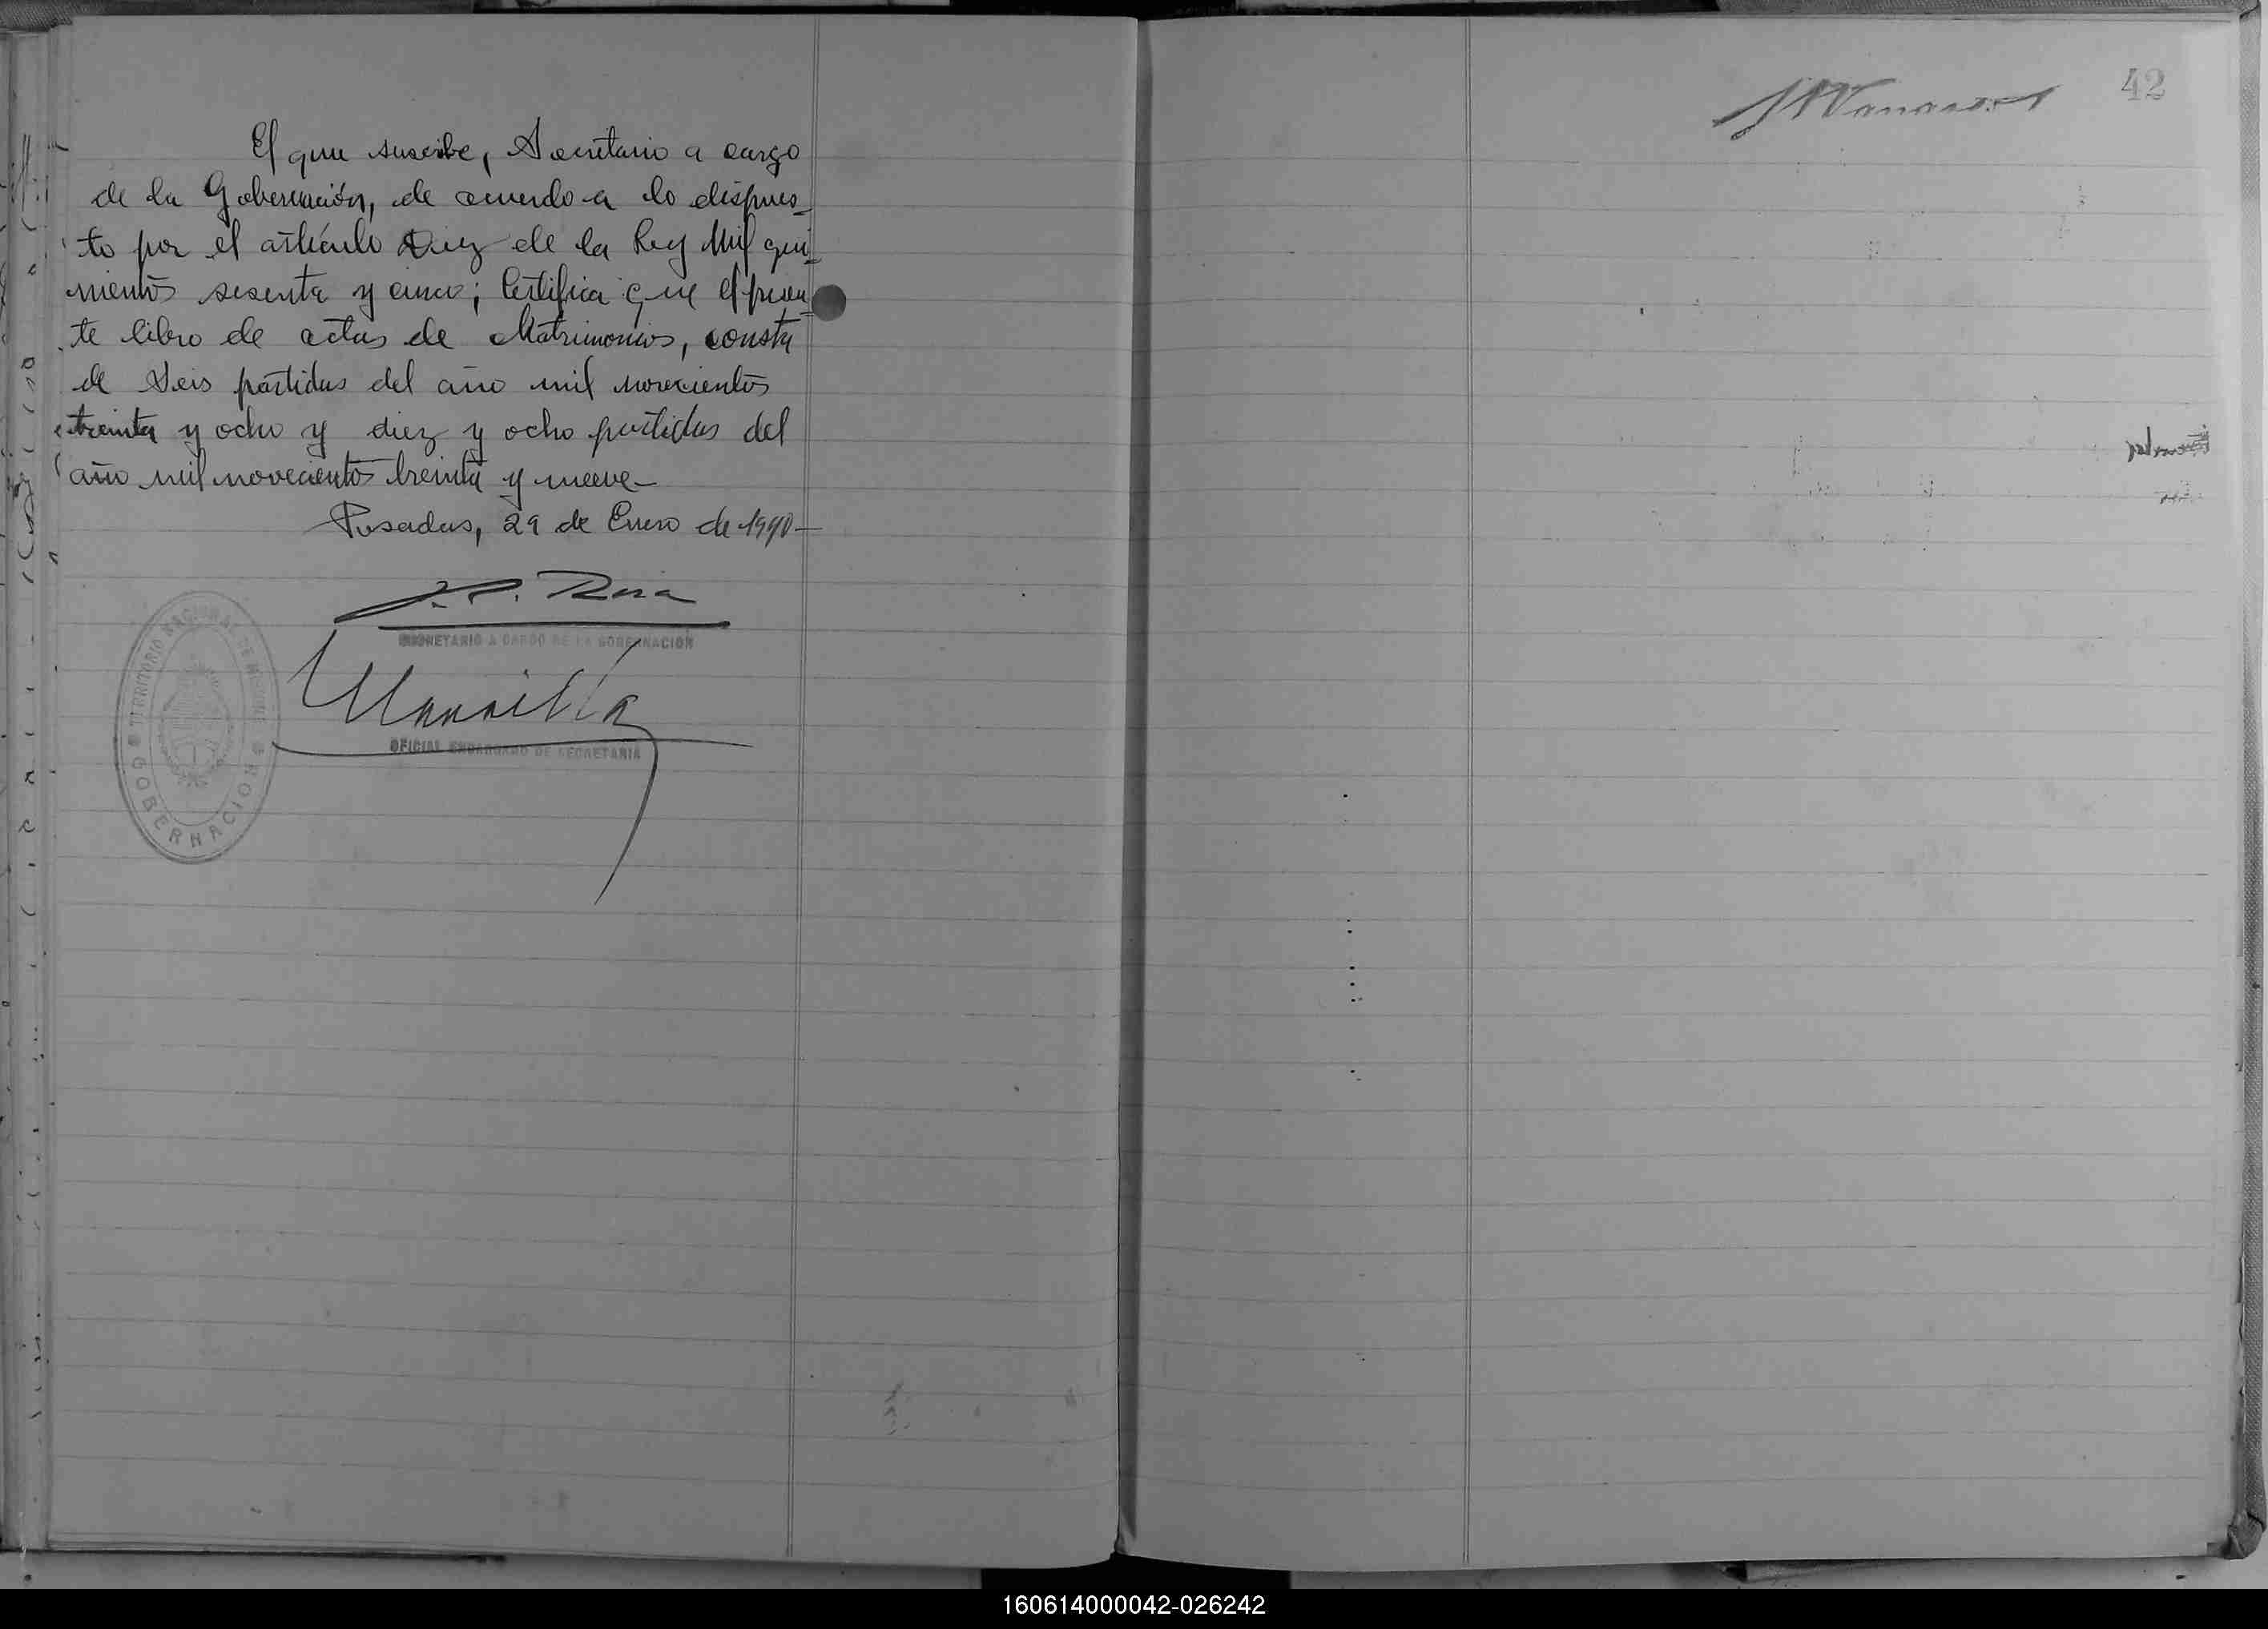 El que suscribe, Secretario a cargo
de la Gobernación, de acuerdo a lo dispues-
to por el artículo Diez de la Ley Mil qui-
nientos sesenta y cinco; Certifica que el presen-
te libro de actas de Matrimonios, consta
de Seis partidas del año mil novecientos
treinta y ocho y diez y ocho partidas del
año mil novecientos treinta y nueve-
Posadas, 29 de Enero de 1940-
SECRETARIO A CARGO DE LA GOBERNACION
Mansilla
OFICIAL ENCARGADO DE SECRETARIA
TERRITORIO NACIONAL DE
GOBERNACION
42
160614000042-026242